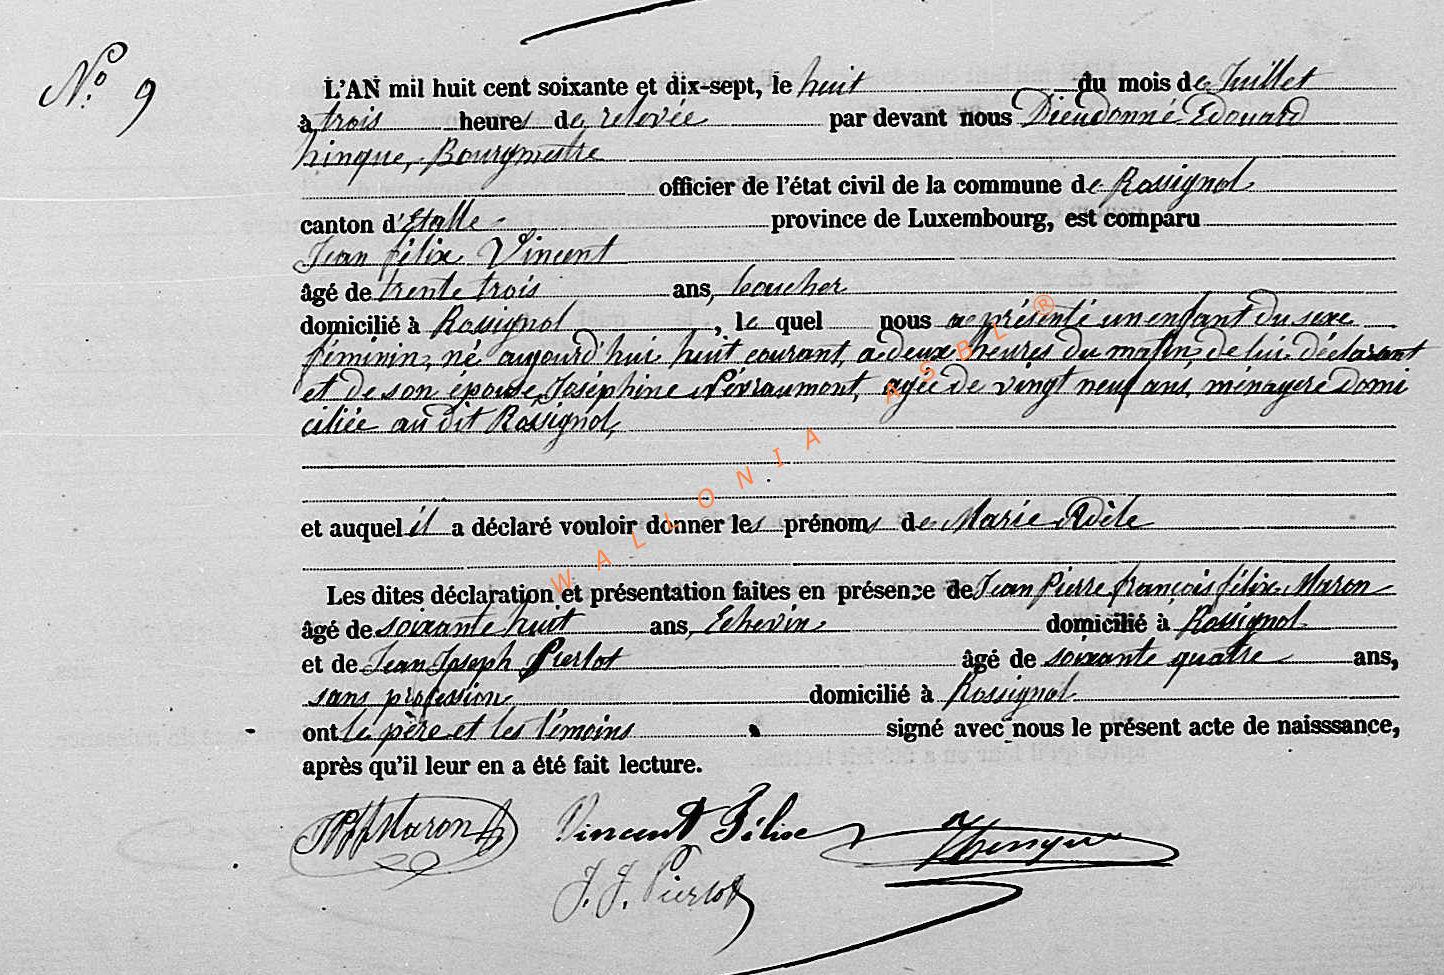 N° 9
L'AN mil huit cent soixante et dix-sept, le huit du mois de Juillet
à trois heures de relevée par devant nous Dieudonné Edouard
hinque, Bourgmestre
officier de l'état civil de la commune de Rossignol
canton d'Etalle province de Luxembourg, est comparu
Jean félix Vincent
âgé de trente trois ans, boucher
domicilié à Rossignol, le quel nous a présenté un enfant du sexe
féminin, né aujourd'hui huit courant, à deux heures du matin, de lui déclarant
et de son épouse Joséphine Névraumont, agée de vingt neuf ans, ménagere domi
ciliée au dit Rossignol,
et auquel il a déclaré vouloir donner les prénoms de Marie Adèle
Les dites déclaration et présentation faites en présence de Jean Pierre françois félix Maron
âgé de soixante huit ans, Echevin domicilié à Rossignol
et de Jean Joseph Pierlot âgé de soixante quatre ans,
sans profession domicilié à Rossignol
ont le père et les témoins signé avec nous le présent acte de naisssance,
après qu'il leur en a été fait lecture.
JPffMaron Vincent Félix
J. J. Pierlot
WALLONIA ASBL ®